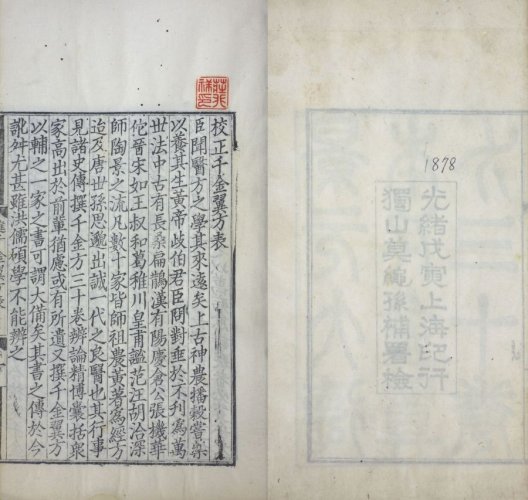 1878
光緒戊寅上海印行
獨山莫繩孫補署檢
校正千金翼方表
臣聞醫方之學其來遠矣上古神農播穀嘗藥
以養其生黃帝歧伯君臣問對垂於不刋為萬
世法中古有長桑扁鵲漢有陽慶倉公張機華
佗晉宋如王叔和葛稚川皇甫謐范汪胡洽深
師陶景之流凡數十家皆師祖農黃著為經方
迨及唐世孫思邈出誠一代之良醫也其行事
見諸史傳撰千金方三十卷辨論精博囊括眾
家高出於前輩猶慮或有所遺又撰千金翼方
以輔之一家之書可謂大備矣其書之傳於今
訛舛尤甚雖洪儒碩學不能辨之